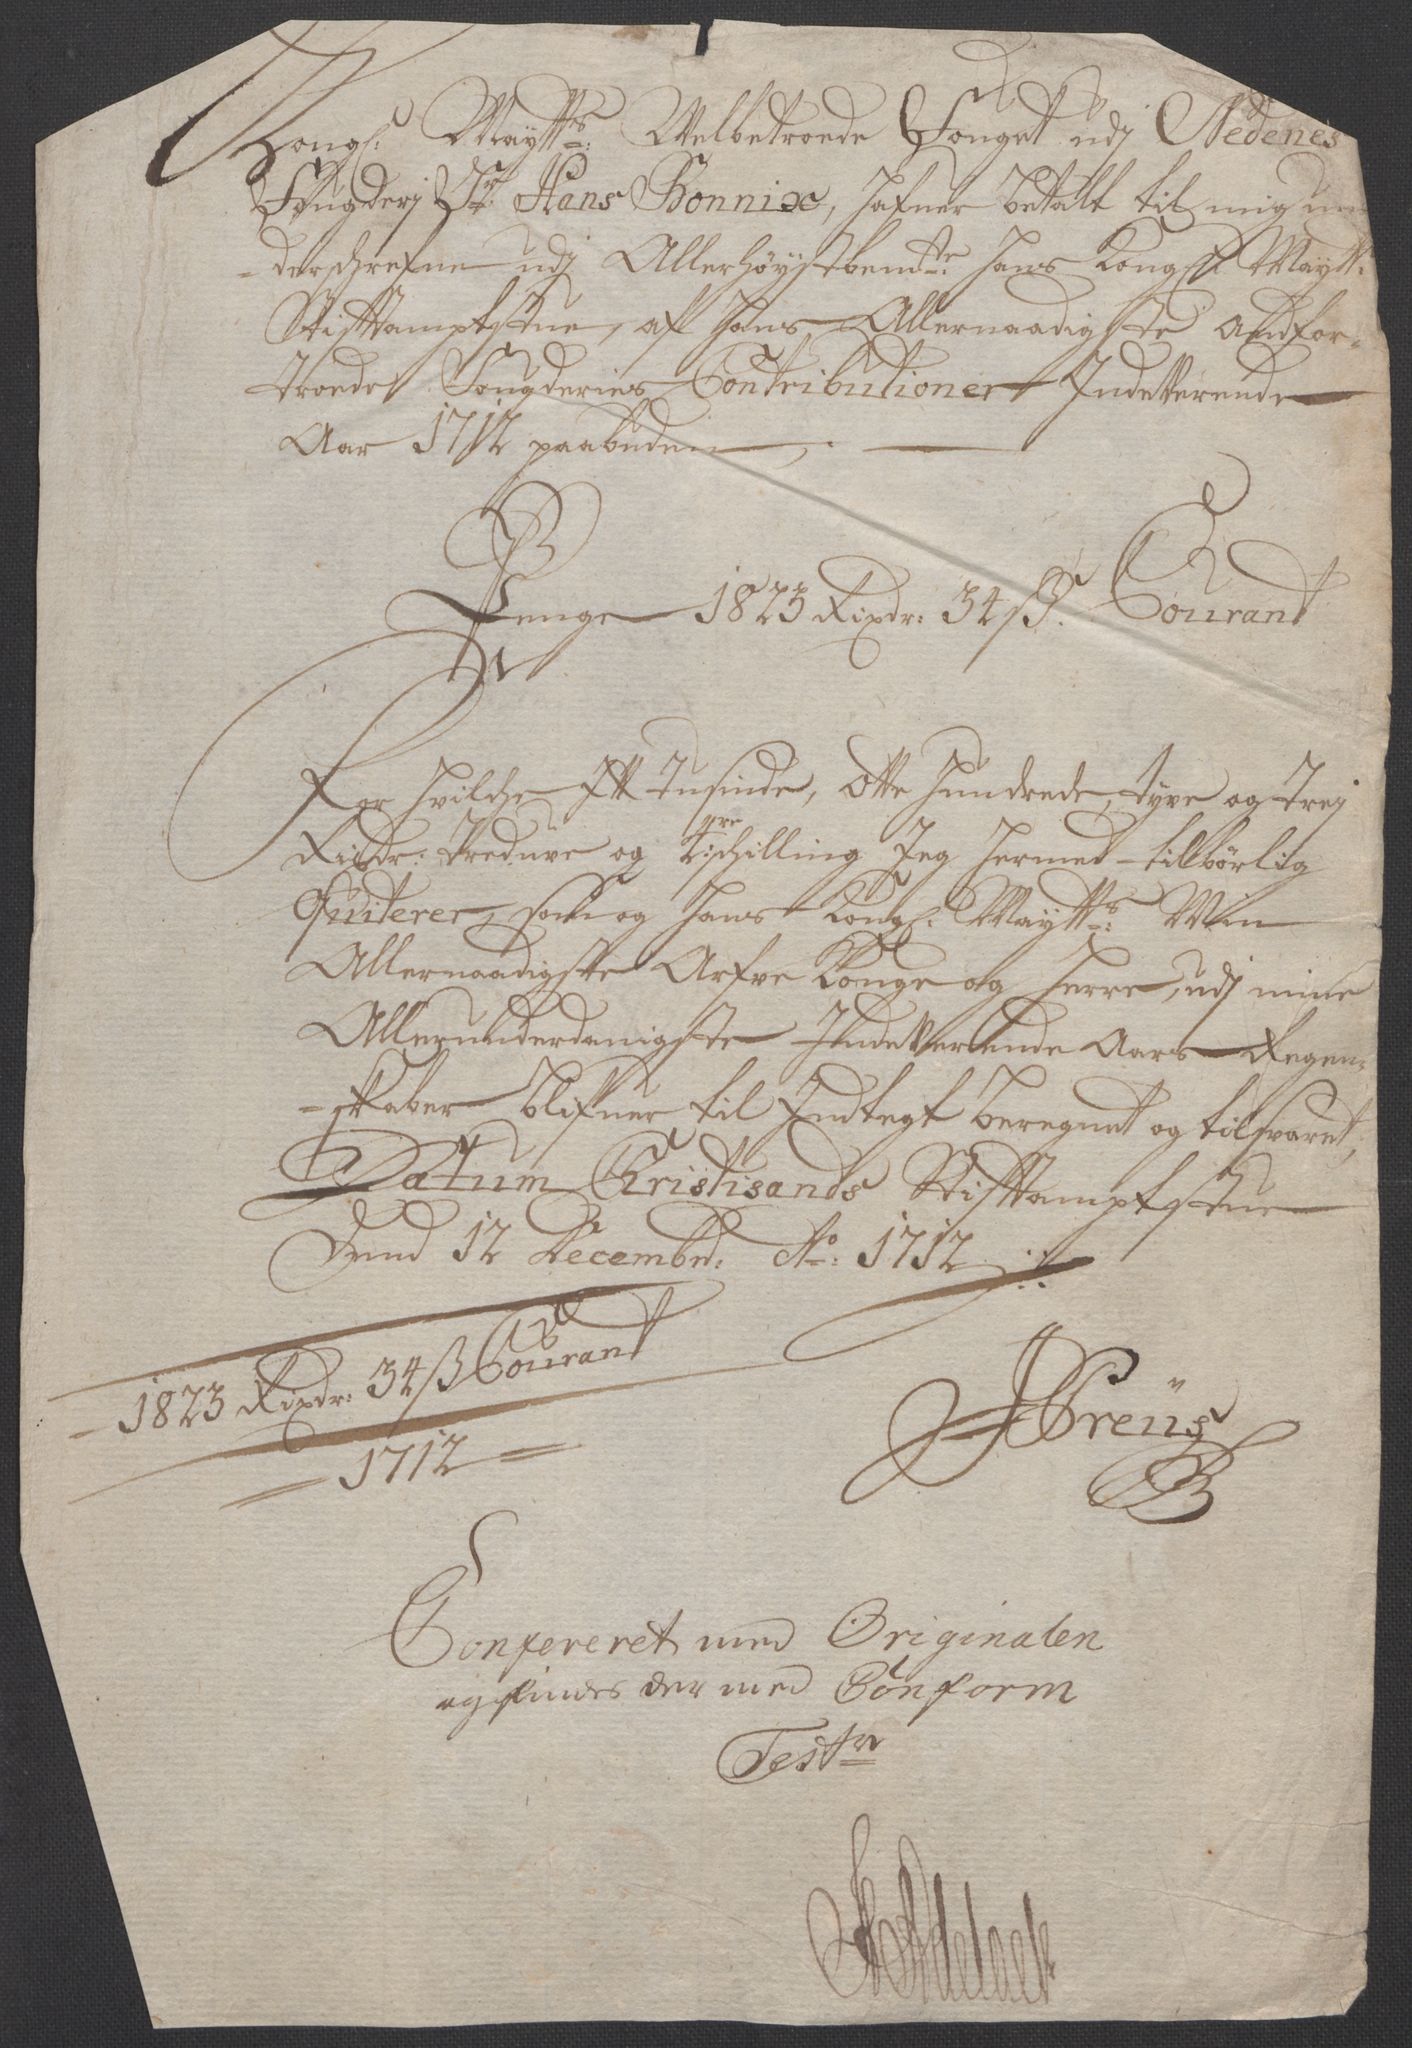 Kongl: Maytts: Welbetroede Fouget udj Nedenes
Fougderj Sr: Hans Bonnix, hafuer betalt til mig un
-derschrefne udj Allerhøystbemte: hans Kongl Maytt:
Stifttamptstue, af hans Allernaadigste andfor-
troede Fougderies Contributioner Indeværende
Aar 1712 paabuden
Penge 1823 Rixdr: 34 ß. Courant
For hvilche Itt tusinde, Otte hundrede, tyve og trej
Rixdr: Tredüve og fire schilling Jeg hermed tilbørlig
Qviterer, som og hans Kongl: Maytts: Min
Allernaadigste Arfve Konge og Herre, udj mine
Allerunderdanigste Indeværende Aars Regen-
-skaber blifuer til Indtegt beregnet og tilsvaret,
Datum Christisands Stifttamptstue
Dend 12 Decembr: Ao: 1712
1823 Rixdr: 34 ß Courant
1712
Grëüs
Confereret med Originalen
og findes der med Conform
Test